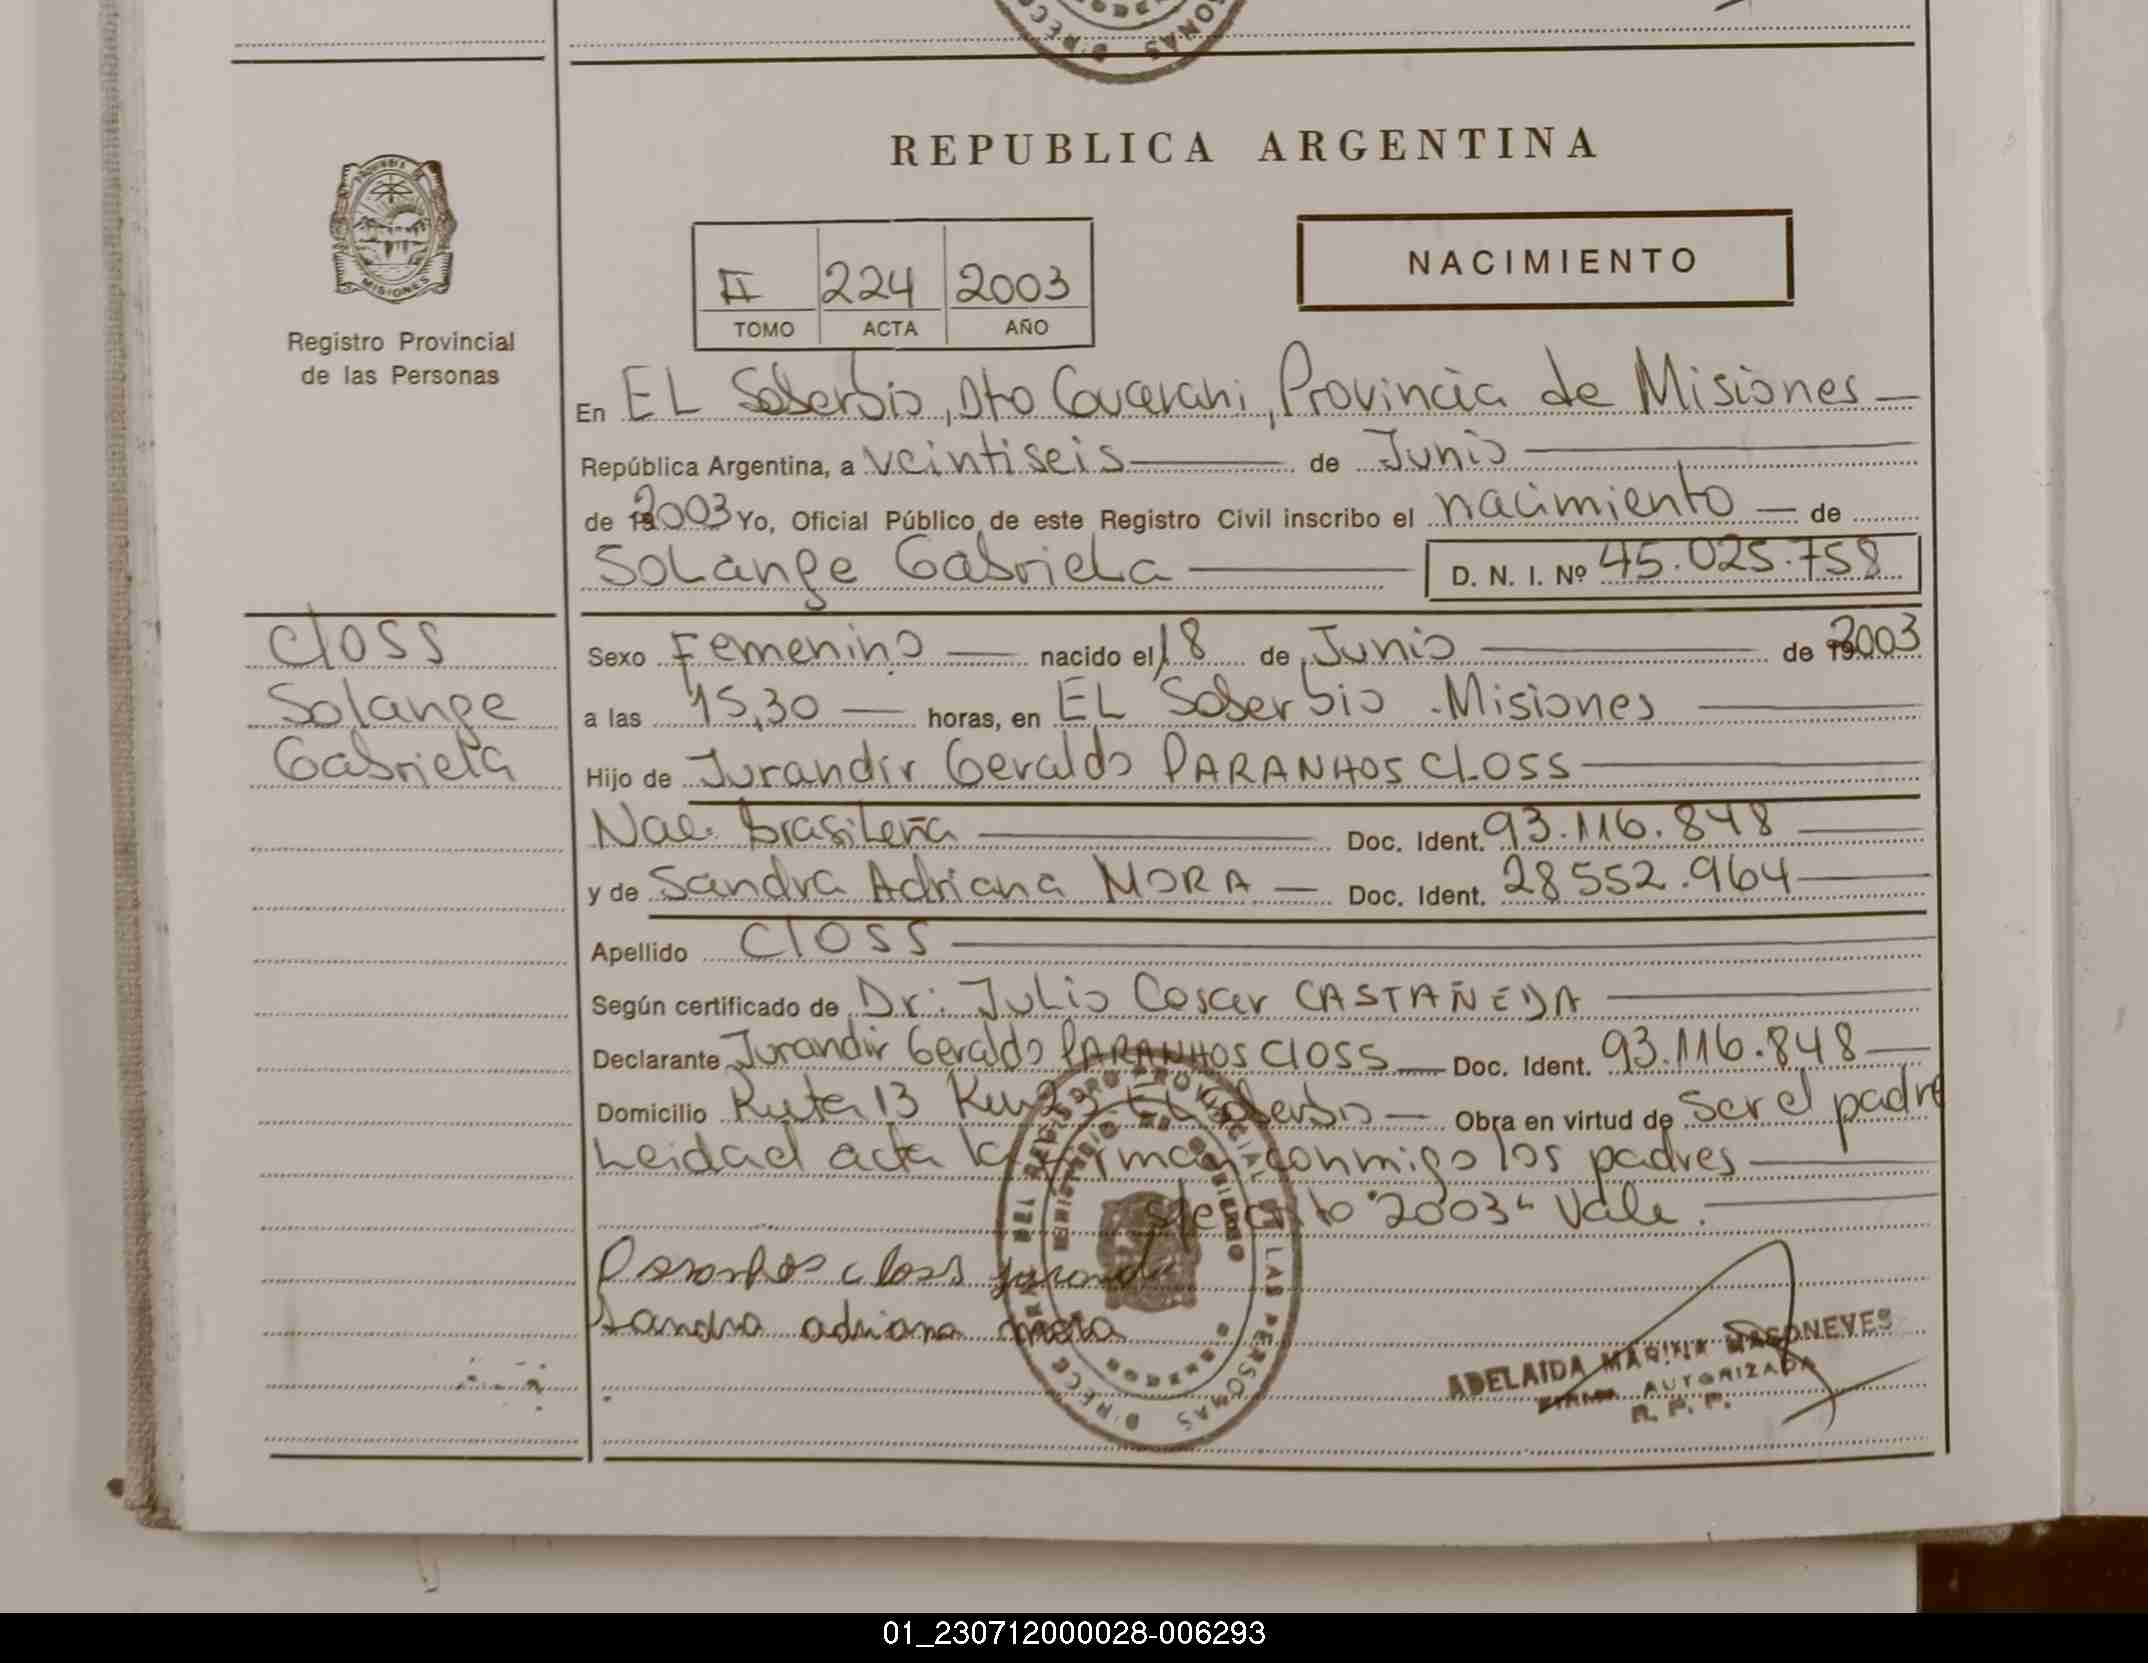 REPUBLICA ARGENTINA
MISIONES
Registro Provincial
de las Personas
II 224 2003
TOMO ACTA AÑO
NACIMIENTO
En EL Soberbio, Dto Guarani, Provincia de Misiones
República Argentina, a veintiseis de Junio
de 2003 Yo, Oficial Público de este Registro Civil inscribo el nacimiento de
Solange Gabriela D. N. I. Nº 45.025.758
Closs
Solange
Gabriela
Sexo Femenino nacido el 18 de Junio de 2003
a las 15,30 horas, en EL Soberbio - Misiones
Hijo de Jurandir Geraldo PARANHOS CLOSS
Nac. Brasileña Doc. Ident. 93.116.848
y de Sandra Adriana MORA Doc. Ident. 28552.964
Apellido Closs
Según certificado de Dr: Julio Cesar CASTAÑEDA
Declarante Jurandir Geraldo PARANHOS Closs Doc. Ident. 93.116.848
Domicilio Ruta 13 Km 23 EL Soberbio Obra en virtud de ser el padre
Leidad acta la firman conmigo los padres
"2003" Vale.
Paranhos closs
Sandra adriana mora
ADELAIDA
FIRMA AUTORIZADA
R. P. P.
01_230712000028-006293